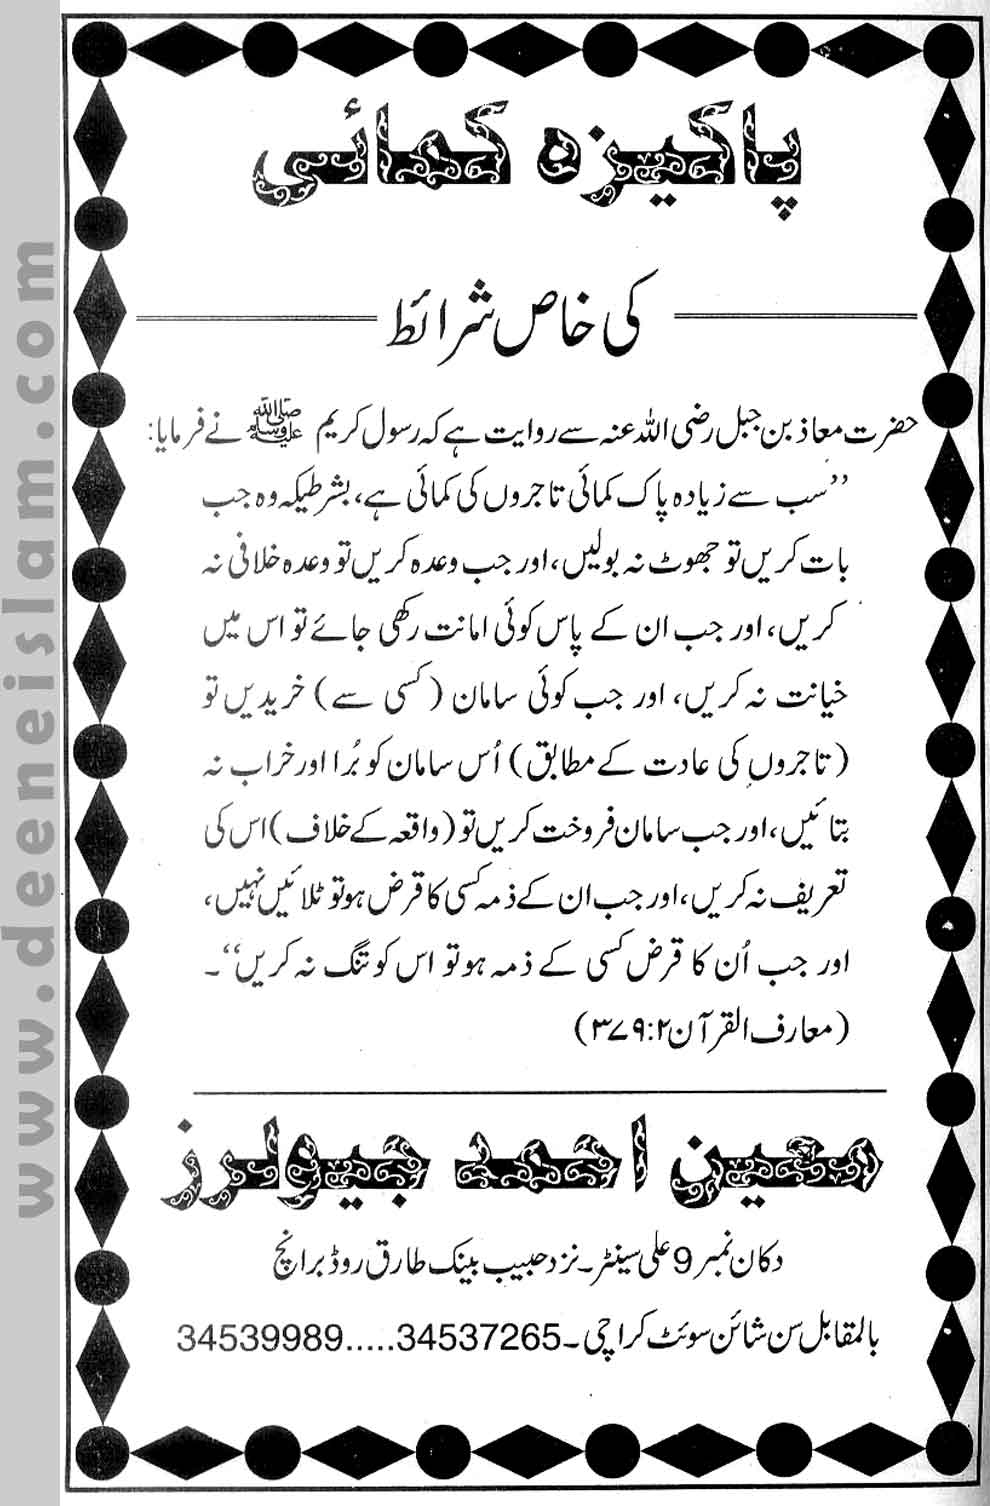 پاکیزہ کمائی
کی خاص شرائط
حضرت معاذ بن جبل رضی اللہ عنہ سے روایت ہے کہ رسول کریم ﷺ نے فرمایا:
’’سب سے زیادہ پاک کمائی تاجروں کی کمائی ہے، بشرطیکہ وہ جب
بات کریں تو جھوٹ نہ بولیں، اور جب وعدہ کریں تو وعدہ خلافی نہ
کریں، اور جب ان کے پاس کوئی امانت رکھی جائے تو اس میں
خیانت نہ کریں، اور جب کوئی سامان (کسی سے) خریدیں تو
(تاجروں کی عادت کے مطابق) اُس سامان کو بُرا اور خراب نہ
بتائیں، اور جب سامان فروخت کریں تو (واقعہ کے خلاف) اس کی
تعریف نہ کریں، اور جب ان کے ذمہ کسی کا قرض ہو تو ٹلائیں نہیں،
اور جب اُن کا قرض کسی کے ذمہ ہو تو اس کو تنگ نہ کریں‘‘۔
(معارف القرآن ۲:۳۷۹)
معین احمد جیولرز
دکان نمبر 9 علی سینٹر۔ نزد حبیب بینک طارق روڈ برانچ
بالمقابل سن شائن سوئٹ کراچی۔ 34537265.....34539989
www.deeneislam.com